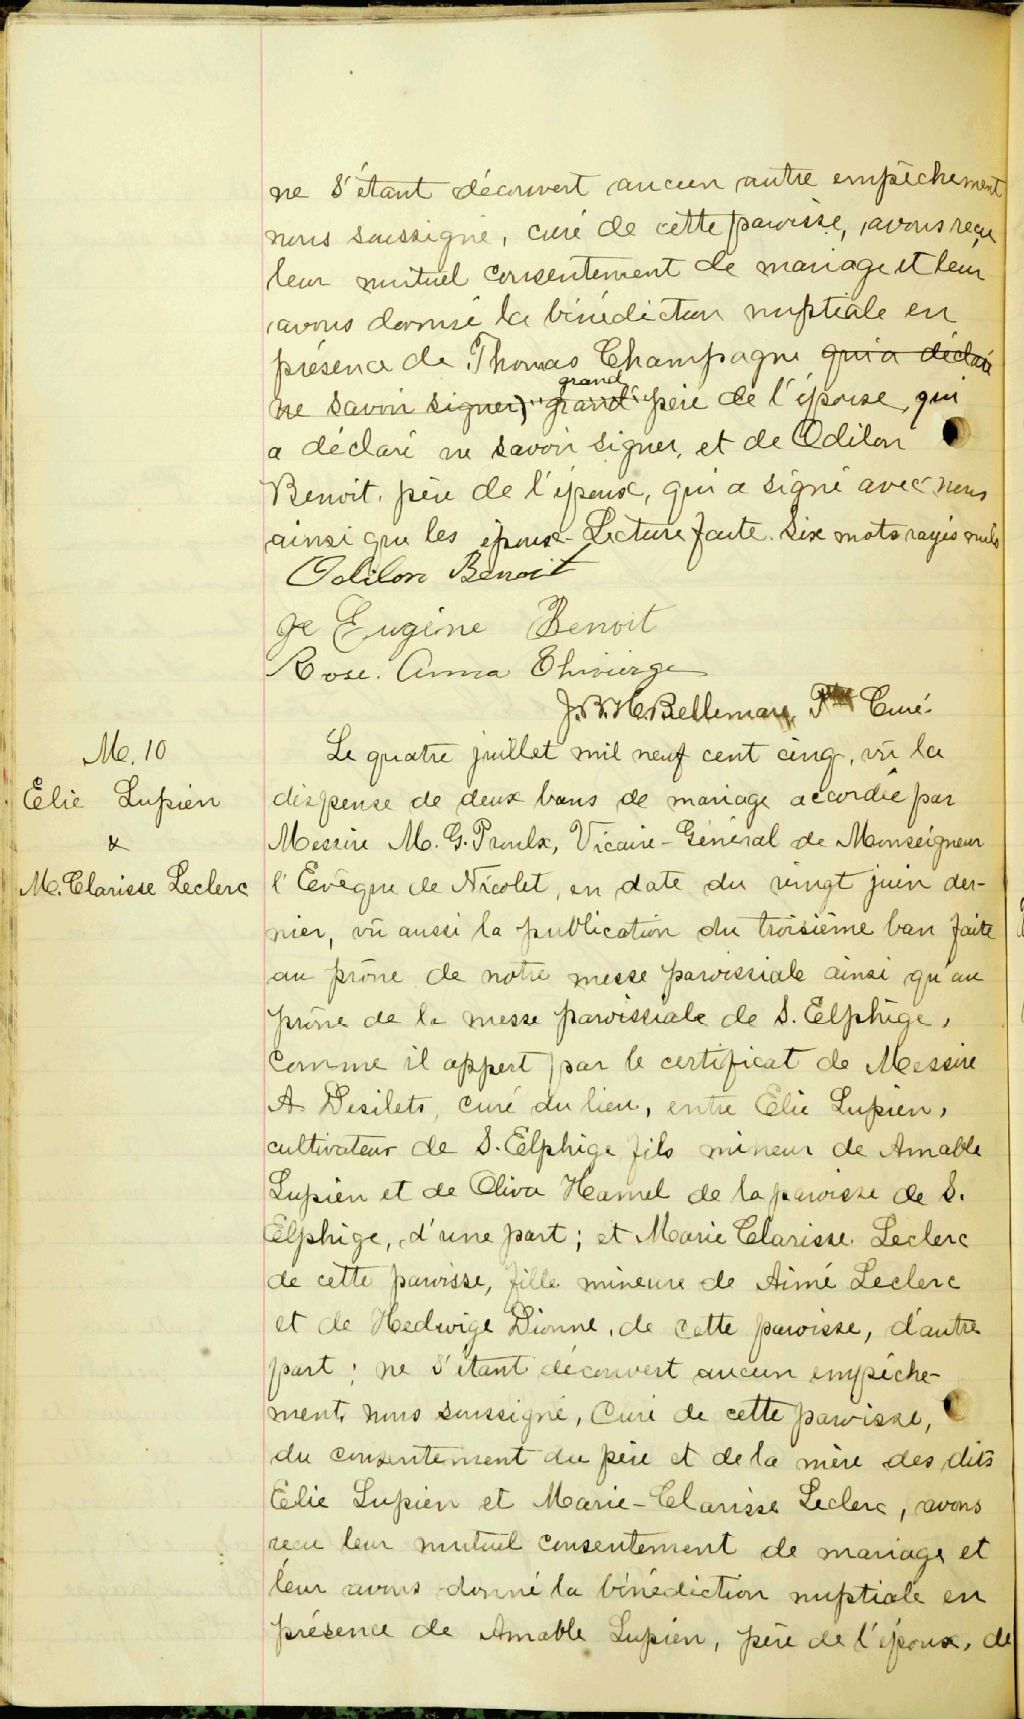 ne s'étant découvert aucun autre empêchement
nous soussigné, curé de cette paroisse, avons reçu
leur mutuel consentement de mariage et leur
avons donné la bénédiction nuptiale en
présence de Thomas Champagne qui a déclaré
grand
ne savoir signer, "grand" père de l'épouse, qui
a déclaré ne savoir signer, et de Odilon
Benoit, père de l'époux, qui a signé avec nous
ainsi que les époux. Lecture faite. Six mots rayés nuls
Odilon Benoit
Je Eugène Benoit
Rose. Anna Thivierge
J.B.H. Bellemare, Ptre Curé.
M. 10
Elie Lupien
&
M. Clarisse Leclerc
Le quatre juillet mil neuf cent cinq, vû la
dispense de deux bans de mariage accordée par
Messire M. G. Proulx, Vicaire-Général de Monseigneur
l'Evêque de Nicolet, en date du vingt juin der-
nier, vû aussi la publication du troisième ban faite
au prône de notre messe paroissiale ainsi qu'au
prône de la messe paroissiale de S. Elphège,
comme il appert par le certificat de Messire
A. Desilets, curé du lieu, entre Elie Lupien,
cultivateur de S. Elphège fils mineur de Amable
Lupien et de Oliva Hamel de la paroisse de S.
Elphège, d'une part; et Marie Clarisse Leclerc
de cette paroisse, fille mineure de Aimé Leclerc
et de Hedwige Dionne, de cette paroisse, d'autre
part; ne s'étant découvert aucun empêche-
ment, nous soussigné, Curé de cette paroisse,
du consentement du père et de la mère des dits
Elie Lupien et Marie-Clarisse Leclerc, avons
reçu leur mutuel consentement de mariage et
leur avons donné la bénédiction nuptiale en
présence de Amable Lupien, père de l'époux, de